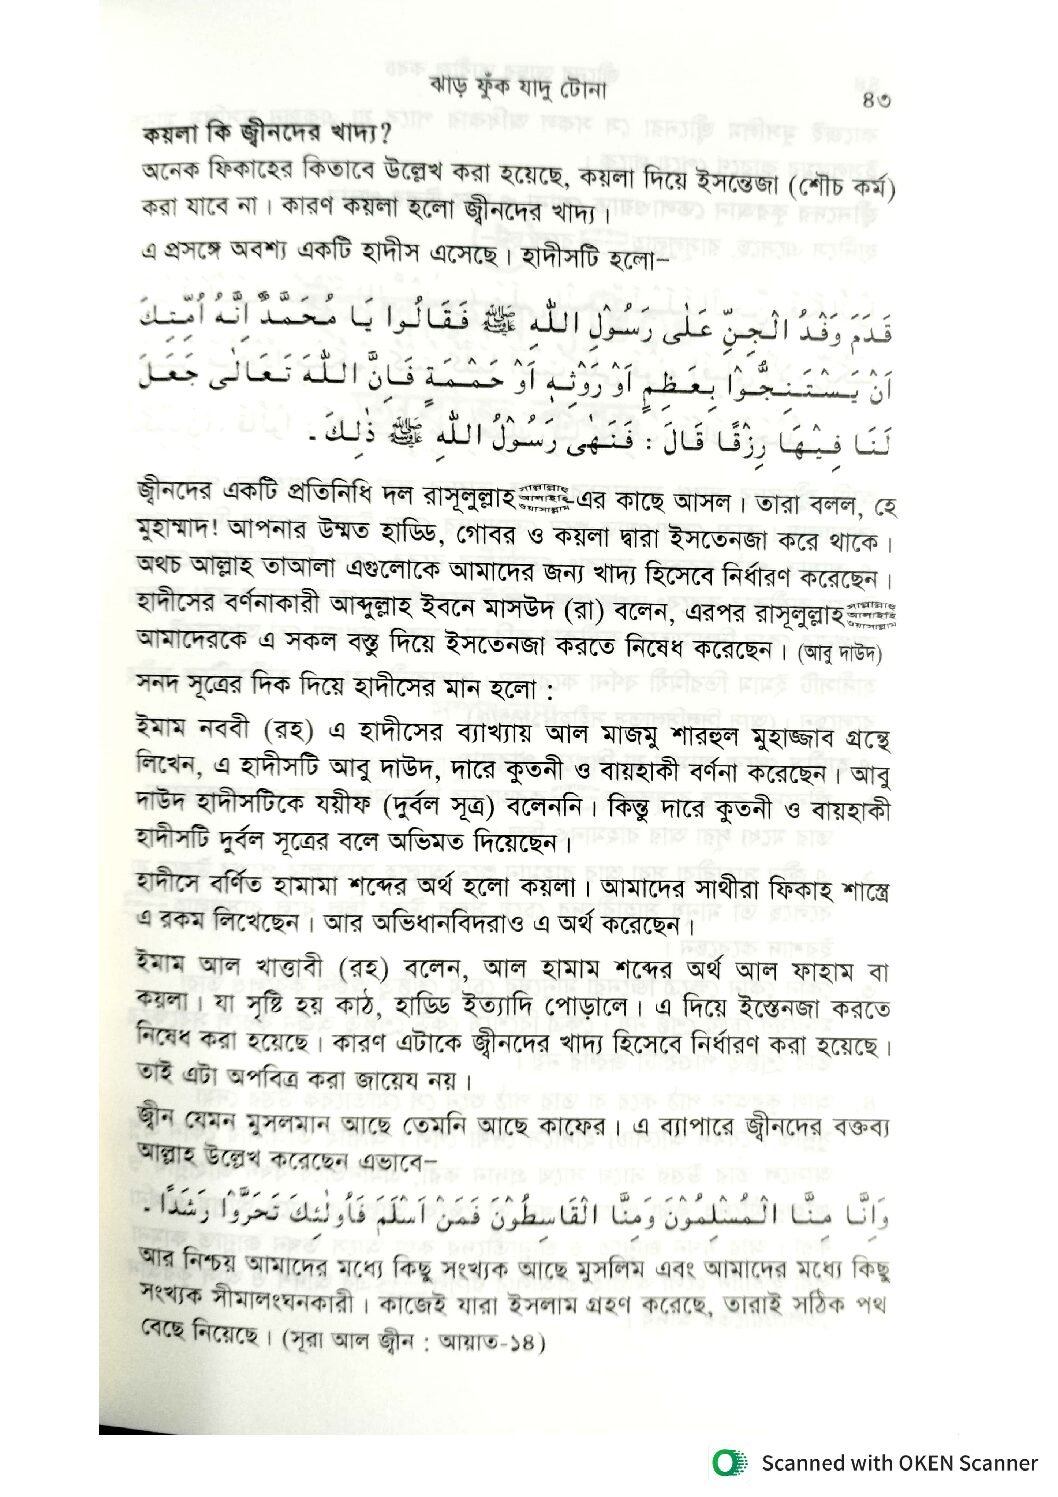 ঝাড় ফুঁক যাদু টোনা
৪৩
কয়লা কি জ্বীনদের খাদ্য?
অনেক ফিকাহের কিতাবে উল্লেখ করা হয়েছে, কয়লা দিয়ে ইসন্তেজা (শৌচ কর্ম)
করা যাবে না। কারণ কয়লা হলো জ্বীনদের খাদ্য।
এ প্রসঙ্গে অবশ্য একটি হাদীস এসেছে। হাদীসটি হলো–
قَدَمَ وَفْدُ الْجِنِّ عَلٰى رَسُوْلِ اللّٰهِ ﷺ فَقَالُوا يَا مُحَمَّدُ اِنَّهُ اُمَّتِكَ
اَنْ يَسْتَنِجُّوْا بِعَظِمٍ اَوْ رَوْثِهٖ اَوْ حَمْمَةٍ فَاِنَّ اللّٰهَ تَعَالٰى جَعَلَ
لَنَا فِيْهَا رِزْقًا قَالَ : فَنَهٰى رَسُوْلُ اللّٰهِ ﷺ ذٰلِكَ ـ
জ্বীনদের একটি প্রতিনিধি দল রাসূলুল্লাহ সাল্লাল্লাহু আলাইহি ওয়াসাল্লাম-এর কাছে আসল। তারা বলল, হে
মুহাম্মাদ! আপনার উম্মত হাড্ডি, গোবর ও কয়লা দ্বারা ইসতেনজা করে থাকে।
অথচ আল্লাহ তাআলা এগুলোকে আমাদের জন্য খাদ্য হিসেবে নির্ধারণ করেছেন।
হাদীসের বর্ণনাকারী আব্দুল্লাহ ইবনে মাসউদ (রা) বলেন, এরপর রাসূলুল্লাহ সাল্লাল্লাহু আলাইহি ওয়াসাল্লাম
আমাদেরকে এ সকল বস্তু দিয়ে ইসতেনজা করতে নিষেধ করেছেন। (আবু দাউদ)
সনদ সূত্রের দিক দিয়ে হাদীসের মান হলো :
ইমাম নববী (রহ) এ হাদীসের ব্যাখ্যায় আল মাজমু শারহুল মুহাজ্জাব গ্রন্থে
লিখেন, এ হাদীসটি আবু দাউদ, দারে কুতনী ও বায়হাকী বর্ণনা করেছেন। আবু
দাউদ হাদীসটিকে যয়ীফ (দুর্বল সূত্র) বলেননি। কিন্তু দারে কুতনী ও বায়হাকী
হাদীসটি দুর্বল সূত্রের বলে অভিমত দিয়েছেন।
হাদীসে বর্ণিত হামামা শব্দের অর্থ হলো কয়লা। আমাদের সাথীরা ফিকাহ শাস্ত্রে
এ রকম লিখেছেন। আর অভিধানবিদরাও এ অর্থ করেছেন।
ইমাম আল খাত্তাবী (রহ) বলেন, আল হামাম শব্দের অর্থ আল ফাহাম বা
কয়লা। যা সৃষ্টি হয় কাঠ, হাড্ডি ইত্যাদি পোড়ালে। এ দিয়ে ইস্তেনজা করতে
নিষেধ করা হয়েছে। কারণ এটাকে জ্বীনদের খাদ্য হিসেবে নির্ধারণ করা হয়েছে।
তাই এটা অপবিত্র করা জায়েয নয়।
জ্বীন যেমন মুসলমান আছে তেমনি আছে কাফের। এ ব্যাপারে জ্বীনদের বক্তব্য
আল্লাহ উল্লেখ করেছেন এভাবে–
وَاَنَّا مِنَّا الْمُسْلِمُوْنَ وَمِنَّا الْقَاسِطُوْنَ فَمَنْ اَسْلَمَ فَاُولٰئِكَ تَحَرَّوْا رَشَدًا ـ
আর নিশ্চয় আমাদের মধ্যে কিছু সংখ্যক আছে মুসলিম এবং আমাদের মধ্যে কিছু
সংখ্যক সীমালংঘনকারী। কাজেই যারা ইসলাম গ্রহণ করেছে, তারাই সঠিক পথ
বেছে নিয়েছে। (সূরা আল জ্বীন : আয়াত-১৪)
Scanned with OKEN Scanner